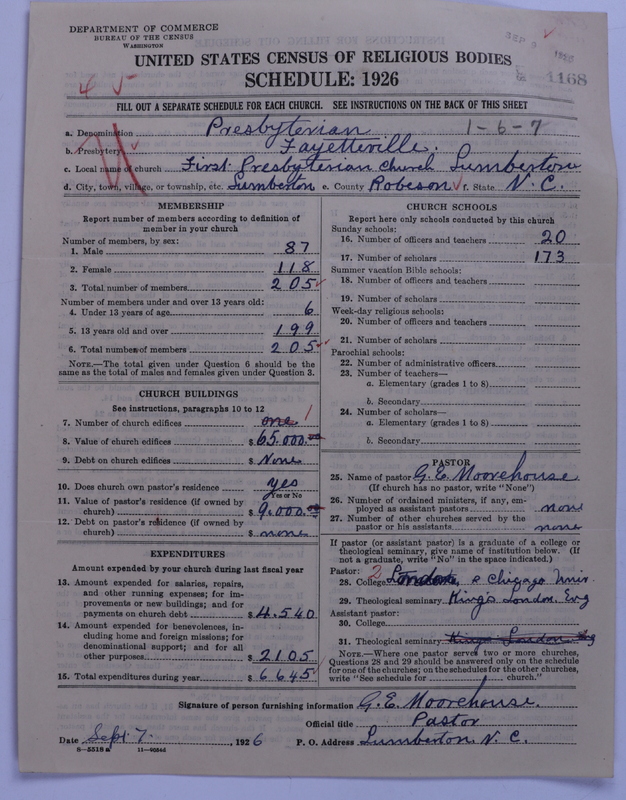 DEPARTMENT OF COMMERCE
BUREAU OF THE CENSUS
WASHINGTON
SEP 9 1926
1168
UNITED STATES CENSUS OF RELIGIOUS BODIES
SCHEDULE: 1926
FILL OUT A SEPARATE SCHEDULE FOR EACH CHURCH. SEE INSTRUCTIONS ON THE BACK OF THIS SHEET
a. Denomination Presbyterian 1-6-7
b. Presbytery Fayetteville.
c. Local name of church First Presbyterian Church Lumberton
d. City, town, village, or township, etc. Lumberton e. County Robeson f. State N.C.
MEMBERSHIP
Report number of members according to definition of
member in your church
Number of members, by sex:
1. Male 87
2. Female 118
3. Total number of members 205
Number of members under and over 13 years old:
4. Under 13 years of age 6
5. 13 years old and over 199
6. Total number of members 205
NOTE.—The total given under Question 6 should be
same as the total of males and females given under Question 3.
CHURCH BUILDINGS
See instructions, paragraphs 10 to 12
7. Number of church edifices one 1
8. Value of church edifices $ 65.000.00
9. Debt on church edifices $ None
10. Does church own pastor's residence? yes
Yes or No
11. Value of pastor's residence (if owned by
church) $ 9.000.00
12. Debt on pastor's residence (if owned by
church) $ none
EXPENDITURES
Amount expended by your church during last fiscal year
13. Amount expended for salaries, repairs,
and other running expenses; for im-
provements or new buildings; and for
payments on church debt $ 4.540
14. Amount expended for benevolences, in-
cluding home and foreign missions; for
denominational support; and for all
other purposes $ 2105
15. Total expenditures during year $ 6645
CHURCH SCHOOLS
Report here only schools conducted by this church
Sunday schools:
16. Number of officers and teachers 20
17. Number of scholars 173
Summer vacation Bible schools:
18. Number of officers and teachers
19. Number of scholars
Week-day religious schools:
20. Number of officers and teachers
21. Number of scholars
Parochial schools:
22. Number of administrative officers
23. Number of teachers—
a. Elementary (grades 1 to 8)
b. Secondary
24. Number of scholars—
a. Elementary (grades 1 to 8)
b. Secondary
PASTOR
25. Name of pastor G.E. Moorehouse
(If church has no pastor, write "None")
26. Number of ordained ministers, if any, em-
ployed as assistant pastors none
27. Number of other churches served by the
pastor or his assistants none
If pastor (or assistant pastor) is a graduate of a college or
theological seminary, give name of institution below. (If
not a graduate, write "No" in the space indicated.)
Pastor: 2
28. College Chicago Univ.
29. Theological seminary King's London. Eng
Assistant pastor:
30. College
31. Theological seminary King's London Eng
NOTE.—Where one pastor serves two or more churches,
Questions 28 and 29 should be answered only on the schedule
for one of the churches; on the schedules for the other churches,
write "See schedule for church."
Signature of person furnishing information G.E. Moorehouse.
Official title Pastor
Date Sept 7. 1926 P. O. Address Lumberton. N. C.
8-5518a 11-9054d